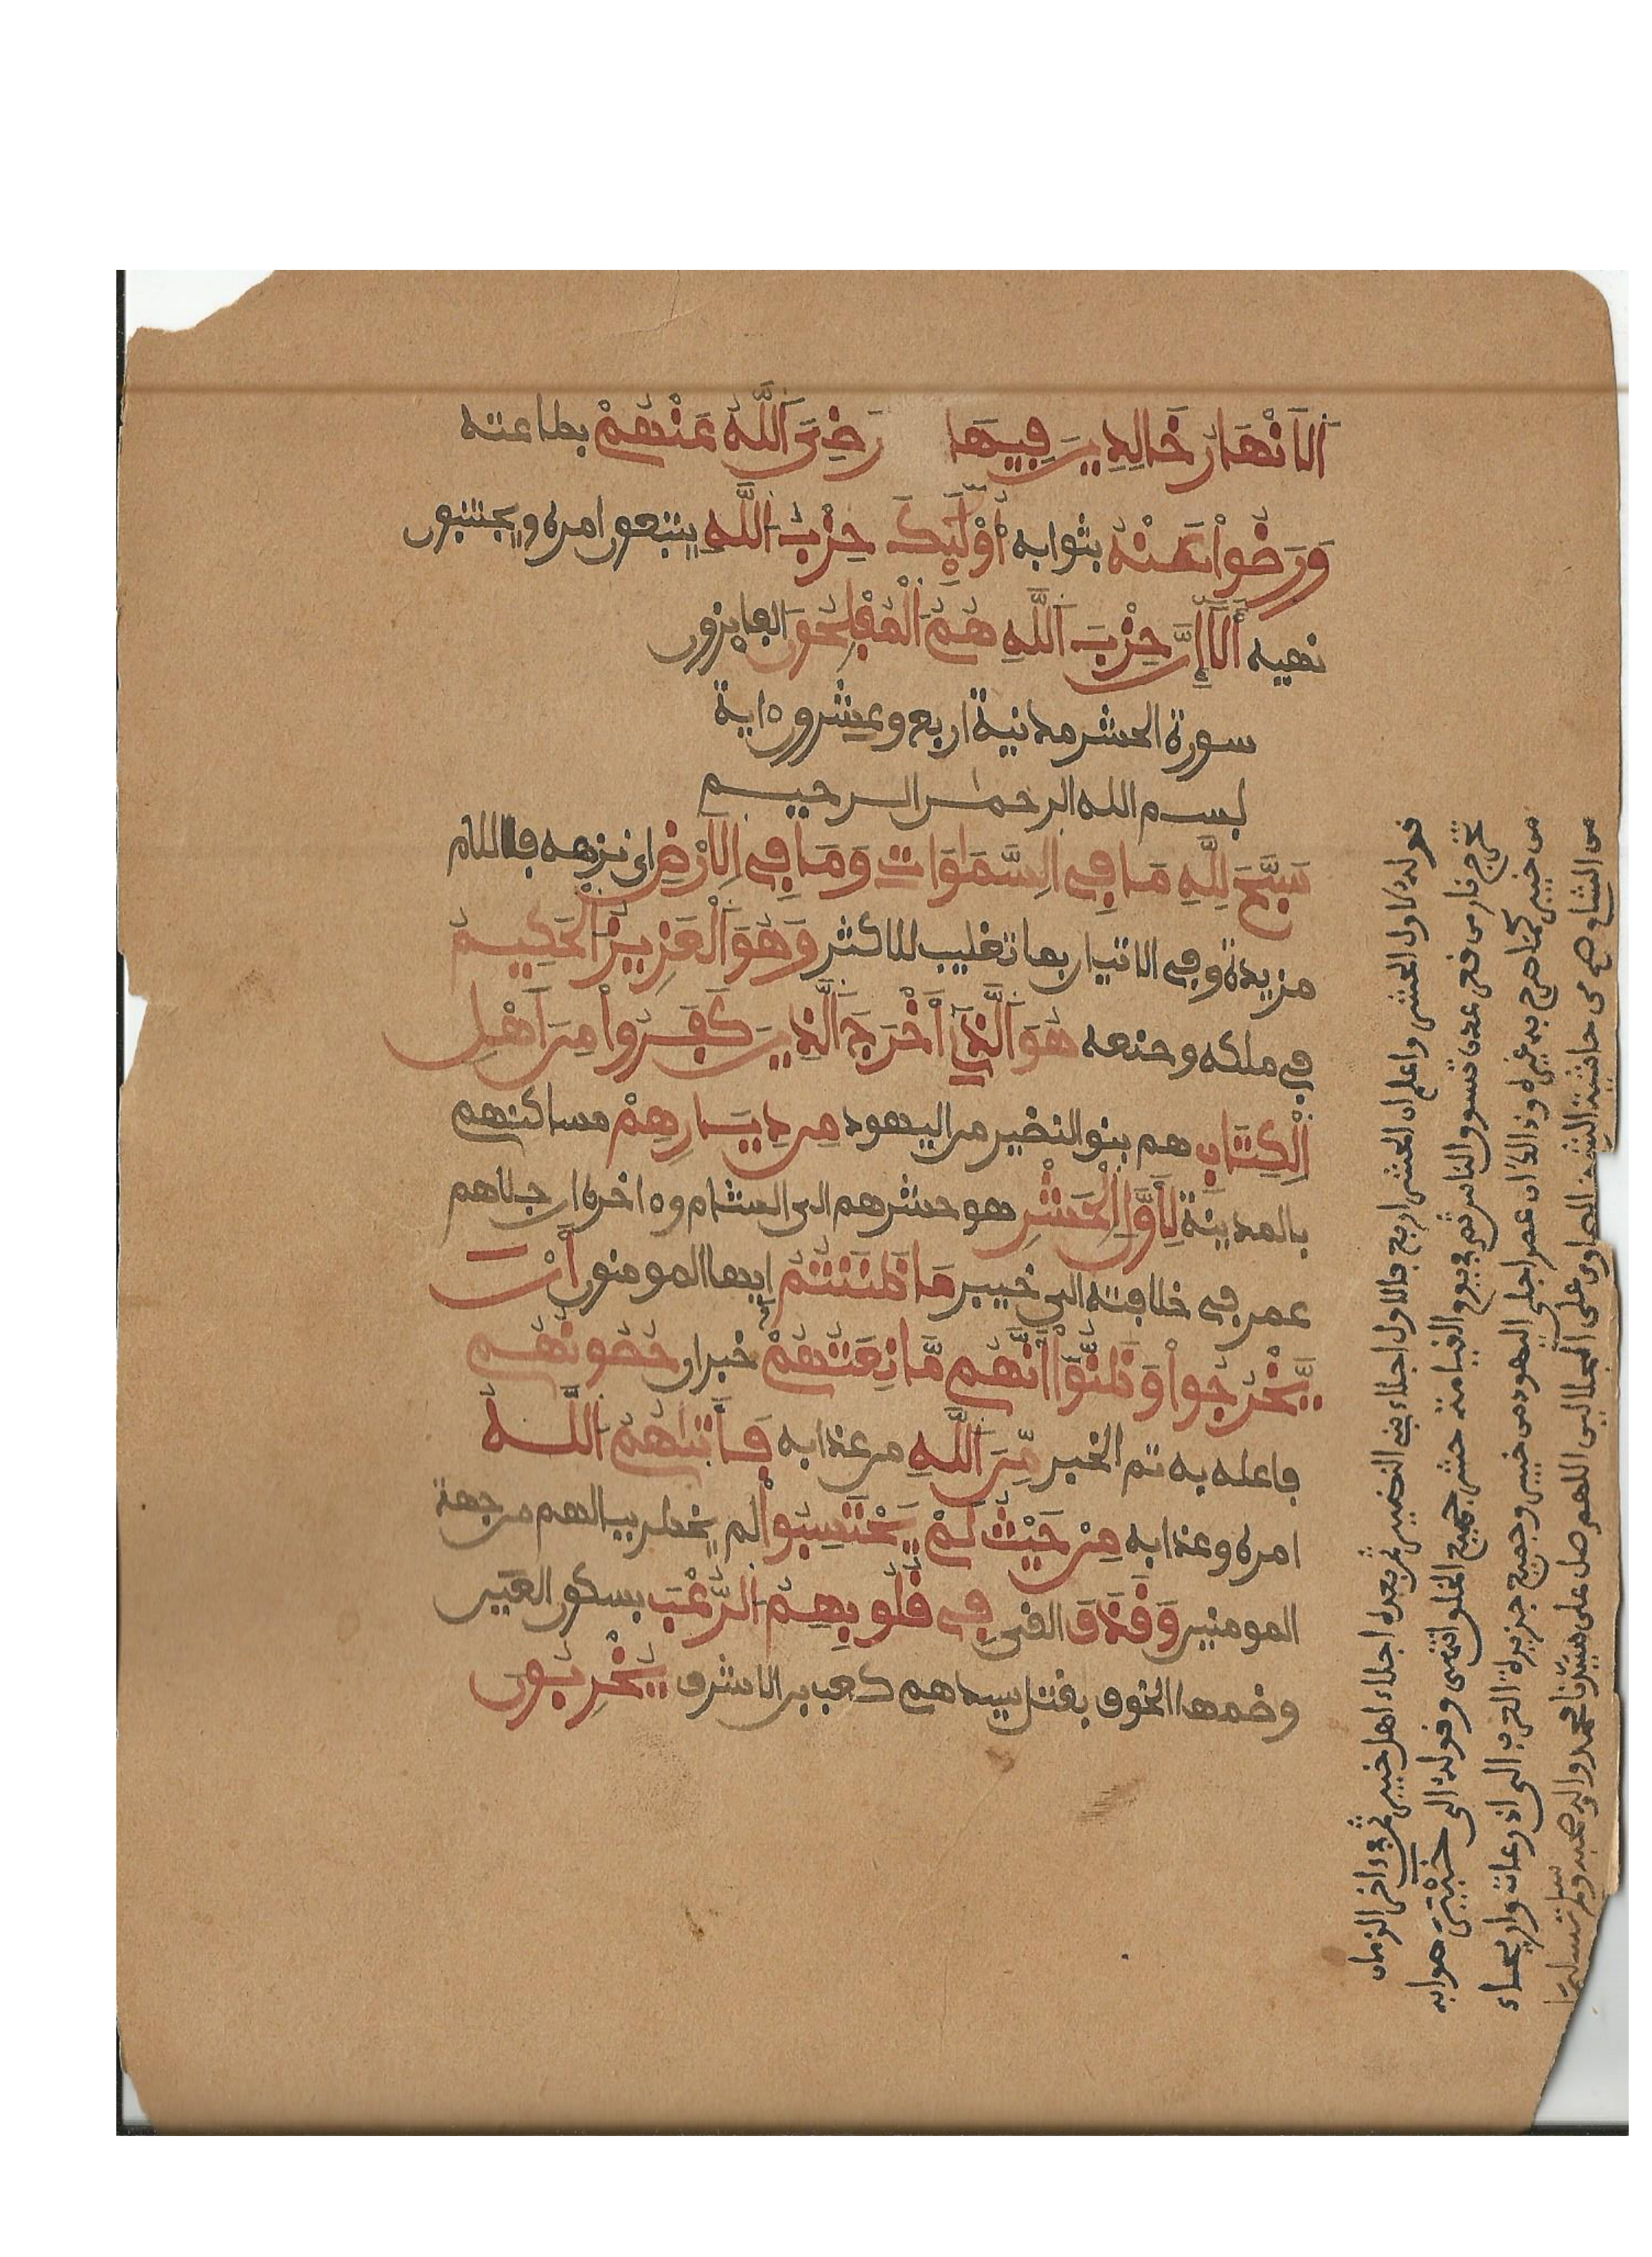 الَانْهَارُ خَالِدِينَ فِيهَا رَضِيَ اَللَّهُ عَنْهُمْ بطاعته
وَرَضُواْ عَنْهُ بثوابه أُوْلَٰٓئِكَ حِزْبُ اَللَّهِ يتبعون امره ويجتنبون
نهيه أَلَآ إِنَّ حِزْبَ اَللَّهِ هُمُ اَلْمُفْلِحُونَ الفايزون
سورة الحشر مدنية اربع وعشرون ءاية
بسم الله الرحمن الرحيم
سَبَّحَ لِلهِ مَا فِي اِلسَّمَٰوَاتِ وَمَا فِي اِلَارْضِ اى نزهه فاللام
مزيدة وفي الاتيان بما تغليب للاكثر وَهُوَ اَلْعَزِيزُ اَلْحَكِيمُ
في ملكه وصنعه هُوَ اَلَّذِي أَخْرَجَ اَلَّذِينَ كَفَرُواْ مِنَ اَهْلِ
اِلْكِتَٰبِ هم بنو النضير من اليهود مِن دِيَٰرِهِمْ مساكنهم
بالمدينة لِأَوَّلِ اِلْحَشْرِ هو حشرهم الى الشام وءاخره ان جلاهم
عمر في خلافته الى خيبر مَا ظَنَنتُمْ ايها المومنون أَنْ
يَّخْرُجُواْ وَظَنُّواْ أَنَّهُم مَّانِعَتُهُمْ خبر ان حُصُونُهُم
فاعله به تم الخبر مِّنَ اَللَّهِ من عذابه فَأَتَىٰهُمُ اَللَّهُ
امره وعذابه مِنْ حَيْثُ لَمْ يَحْتَسِبُواْ لم يخطر ببالهم من جهة
المومنين وَقَذَفَ القى فِي قُلُوبِهِمُ اُلرُّعْبَ بسكون العين
وضمها الخوف بقتل سيدهم كعب بن الاشرف يُخْرِبُونَ
قوله لاول الحشر واعلم ان الحشر اربع فالاول اجلاء بني النضير ثم بعده اجلاء اهل خيبر ثم في ءاخر الزمان
تخرج نار من قعر عدن تسوق الناس ثم في يوم القيامة حشر جميع الخلق وقوله الى خيبر صوابه
من خيبر كما صرح به غيره وذالك ان عمر اجلى اليهود من خيبر وجميع جزيرة العرب الى اذرعات واريحاء
من الشام صح من حاشية الشيخ الصاوى على الجلالين اللهم صل على سيدنا محمد وءاله وصحبه وسلم تسليما